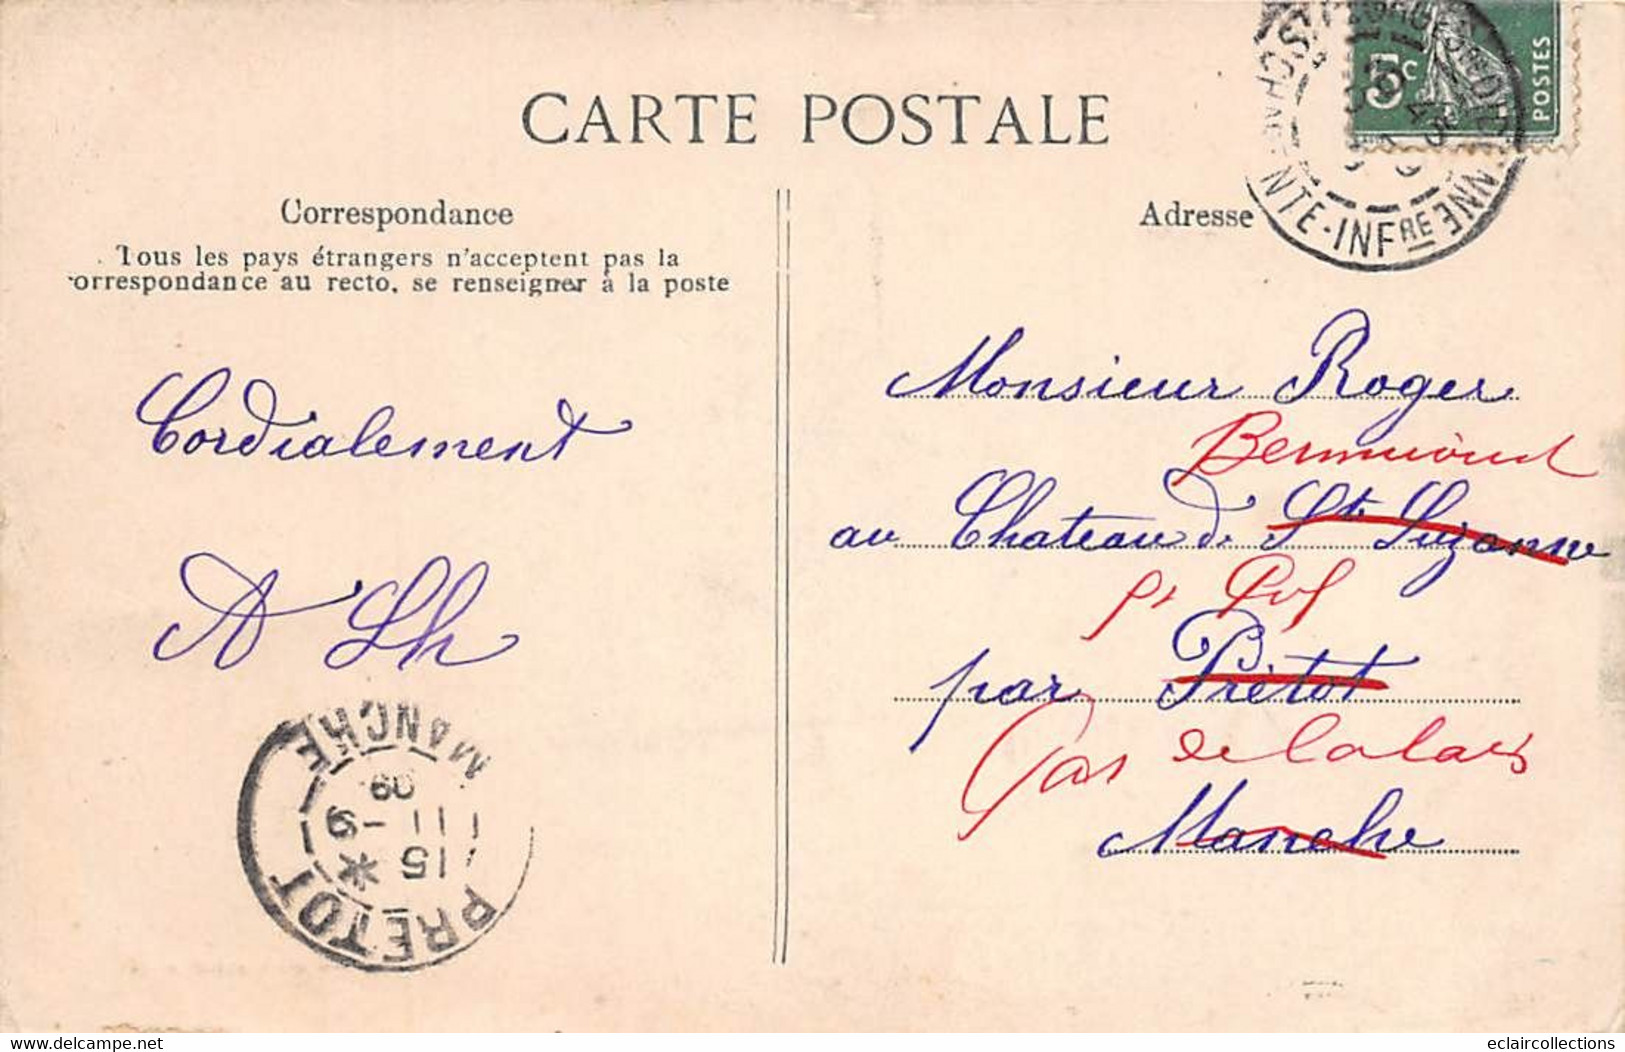 CARTE POSTALE
5c
POSTES
NTE-INFRE
Correspondance
Tous les pays étrangers n'acceptent pas la
correspondance au recto, se renseigner à la poste
Cordialement
Adresse
Monsieur Roger
au Chateau de Ste Suzanne
par Prétot
Pas de Calais
Manche
PRETOT
15 *
11 - 9
09
MANCHE
eclaircollections